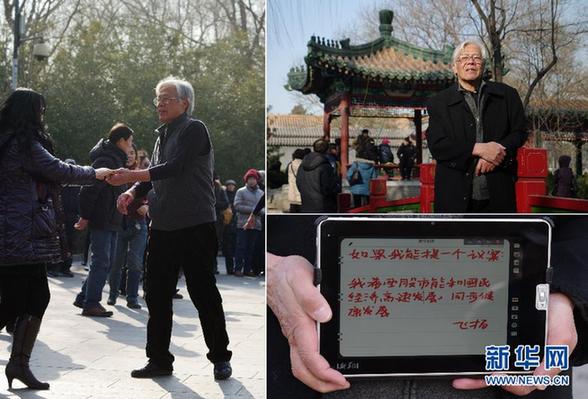 如果我能提一个议案:
我希望股市能和国民
经济,高速发展,同步健
康发展
新华网
WWW.NEWS.CN